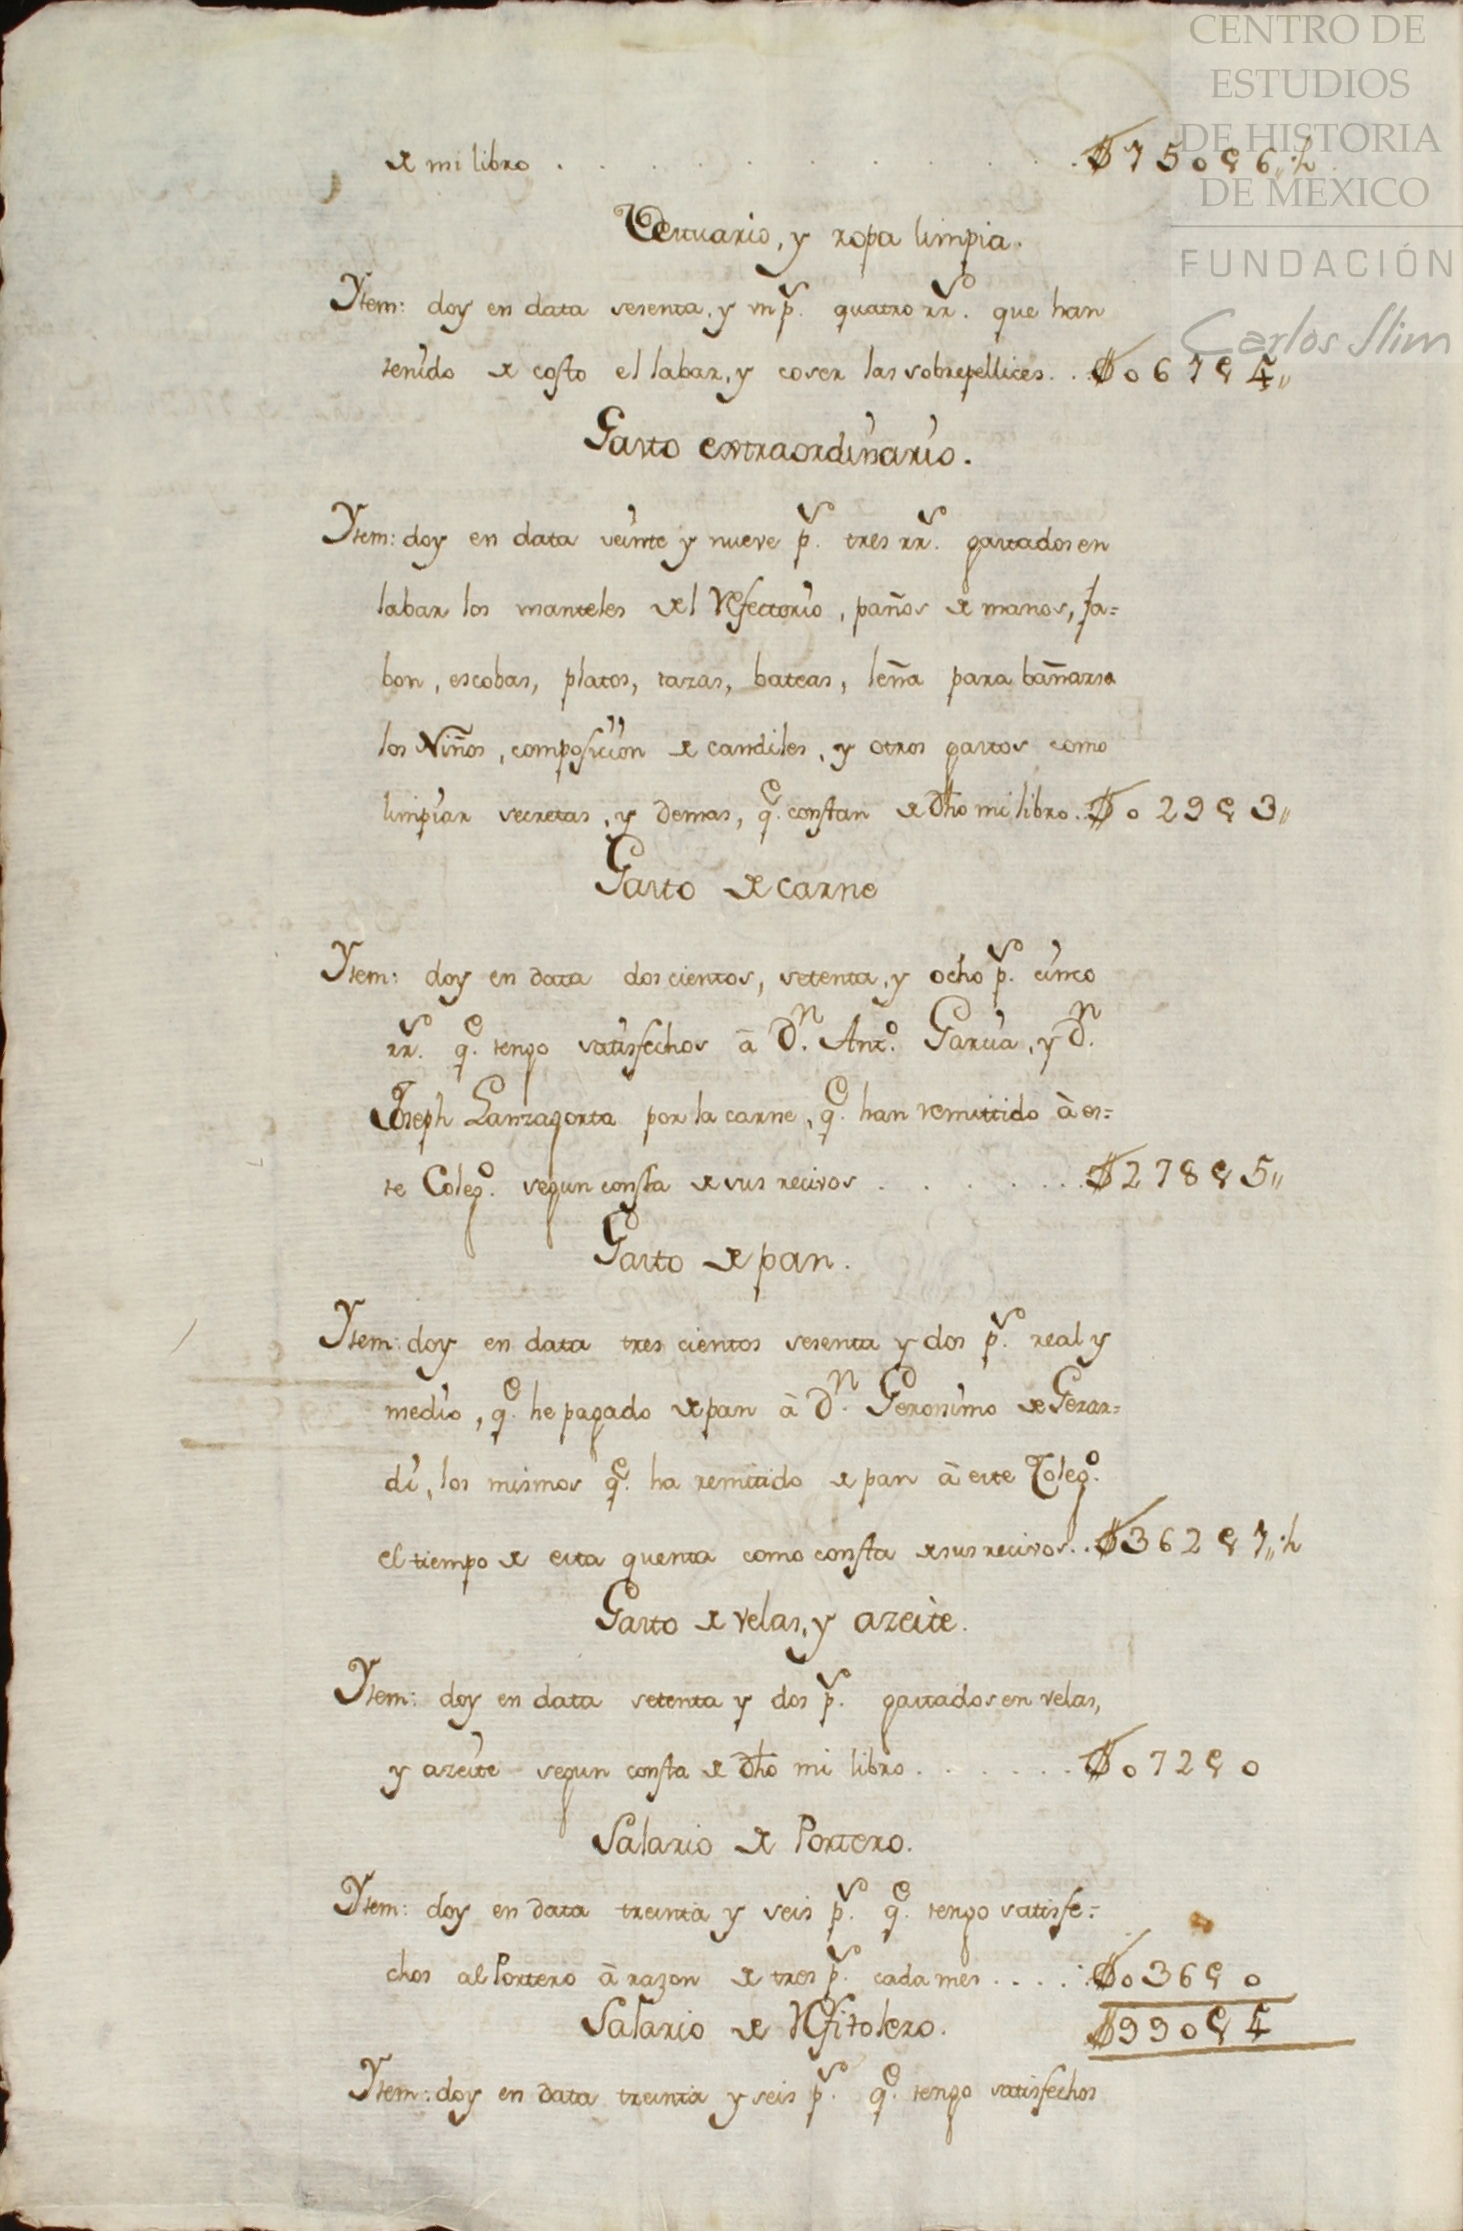 CENTRO DE
ESTUDIOS
DE HISTORIA
DE MÉXICO
FUNDACIÓN
Carlos Slim
de mi libro . . . . . . . . . . . . $150 6,, ½
Vestuario, y ropa limpia.
Ytem: doy en data sesenta, y un pˢ. quatro rrˢ. que han
tenido de costo el labar, y coser las sobrepellices. . $061 4,,
Gasto extraordinario.
Ytem: doy en data veinte y nueve pˢ. tres rrˢ. gastados en
labar los manteles del Refectorio, paños de manos, Ja=
bon, escobas, platos, tazas, bateas, leña para bañarse
los Niños, composicion de candiles, y otros gastos como
limpiar secretas, y demas, qᵉ. constan de dho mi libro. $029 3,,
Gasto de carne
Ytem: doy en data doscientos, setenta, y ocho pˢ. cinco
rrˢ. qᵉ. tengo satisfechos â Dⁿ. Antº. Garcia, y Dⁿ.
Joseph Lanzagorta por la carne, qᵉ. han remittido à es=
te Colegº. segun consta de sus recivos . . . . . . . $278 5,,
Gasto de pan.
Ytem: doy en data tres cientos sesenta y dos pˢ. real y
medio, qᵉ. he pagado de pan â Dⁿ. Geronimo de Gerar=
di, los mismos qᵉ. ha remitido de pan â este Colegº.
el tiempo de esta quenta como consta de sus recivos. . $362 1,, ½
Gasto de velas, y azeite.
Ytem: doy en data setenta y dos pˢ. gastados en velas,
y azeite segun consta de dho mi libro . . . . . . . $072 0
Salario de Portero.
Ytem: doy en data treinta y seis pˢ. qᵉ. tengo satisfe=
chos al Portero â razon de tres pˢ. cada mes . . . . . $036 0
Salario de Refitolero. $990 4
Ytem: doy en data treinta y seis pˢ. qᵉ. tengo satisfechos